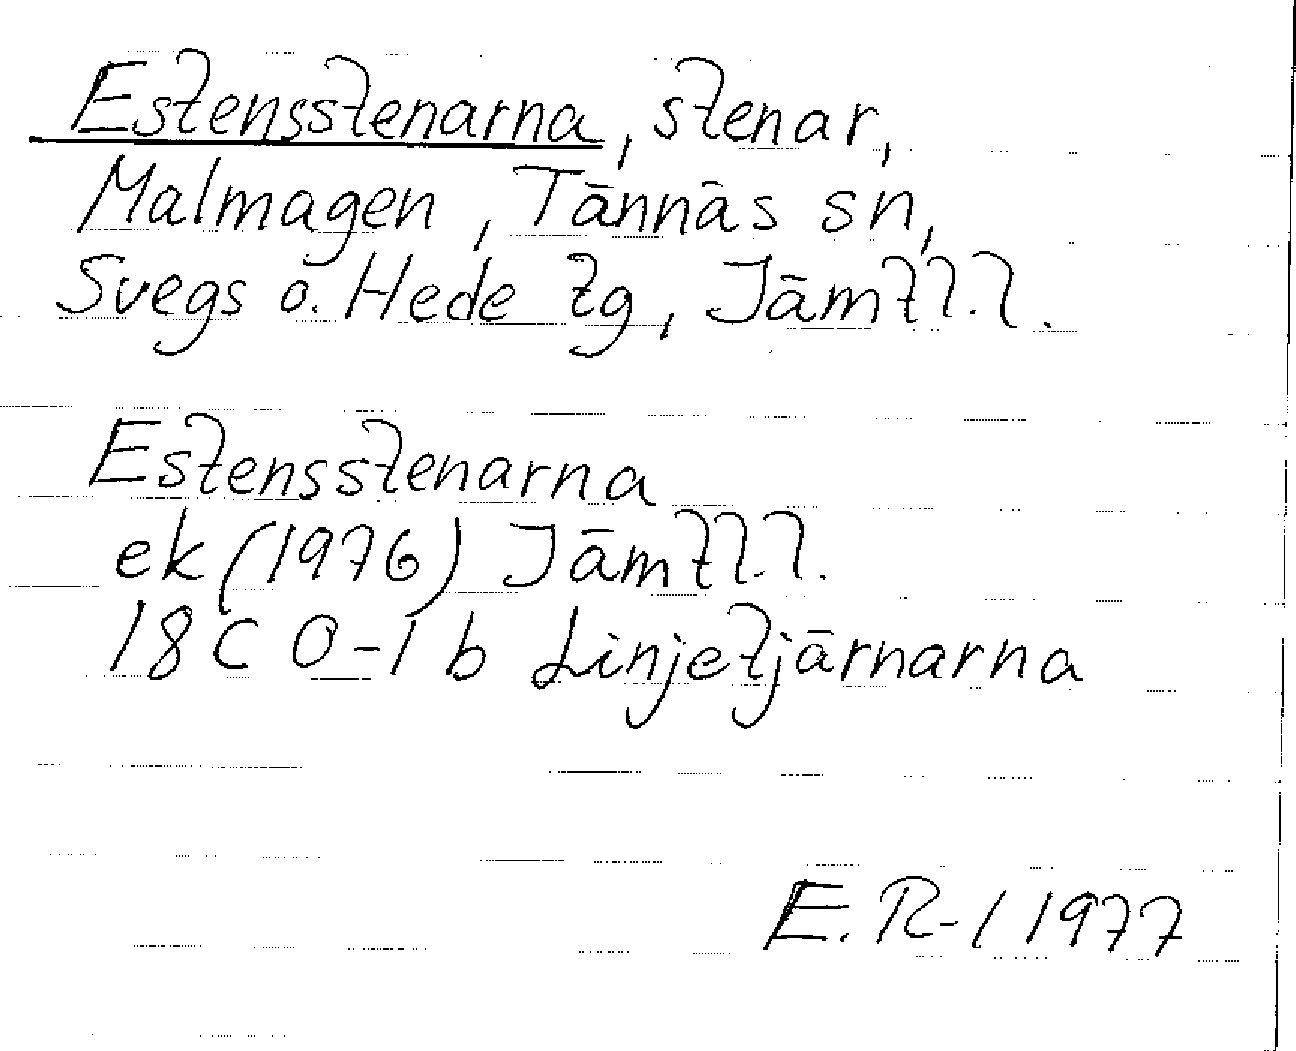 Estensstenarna, stenar,
Malmagen, Tännäs sn,
Svegs o. Hede tg, Jämtl.l.
Estensstenarna
ek (1976) Jämtl.l.
18 C 0-1 b Linjetjärnarna
E. R-l 1977